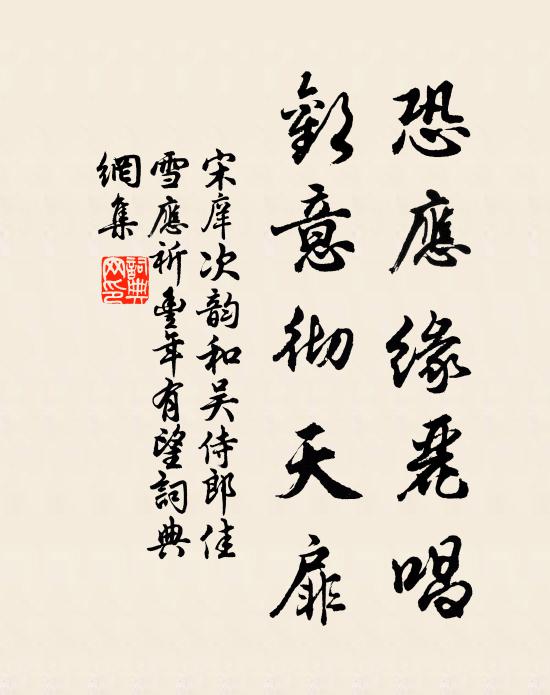 恐應緣麗唱
歡意彻天扉
宋庠次韵和吴侍郎佳
雪應祈豐年有望詞典
網集
詞典
网印